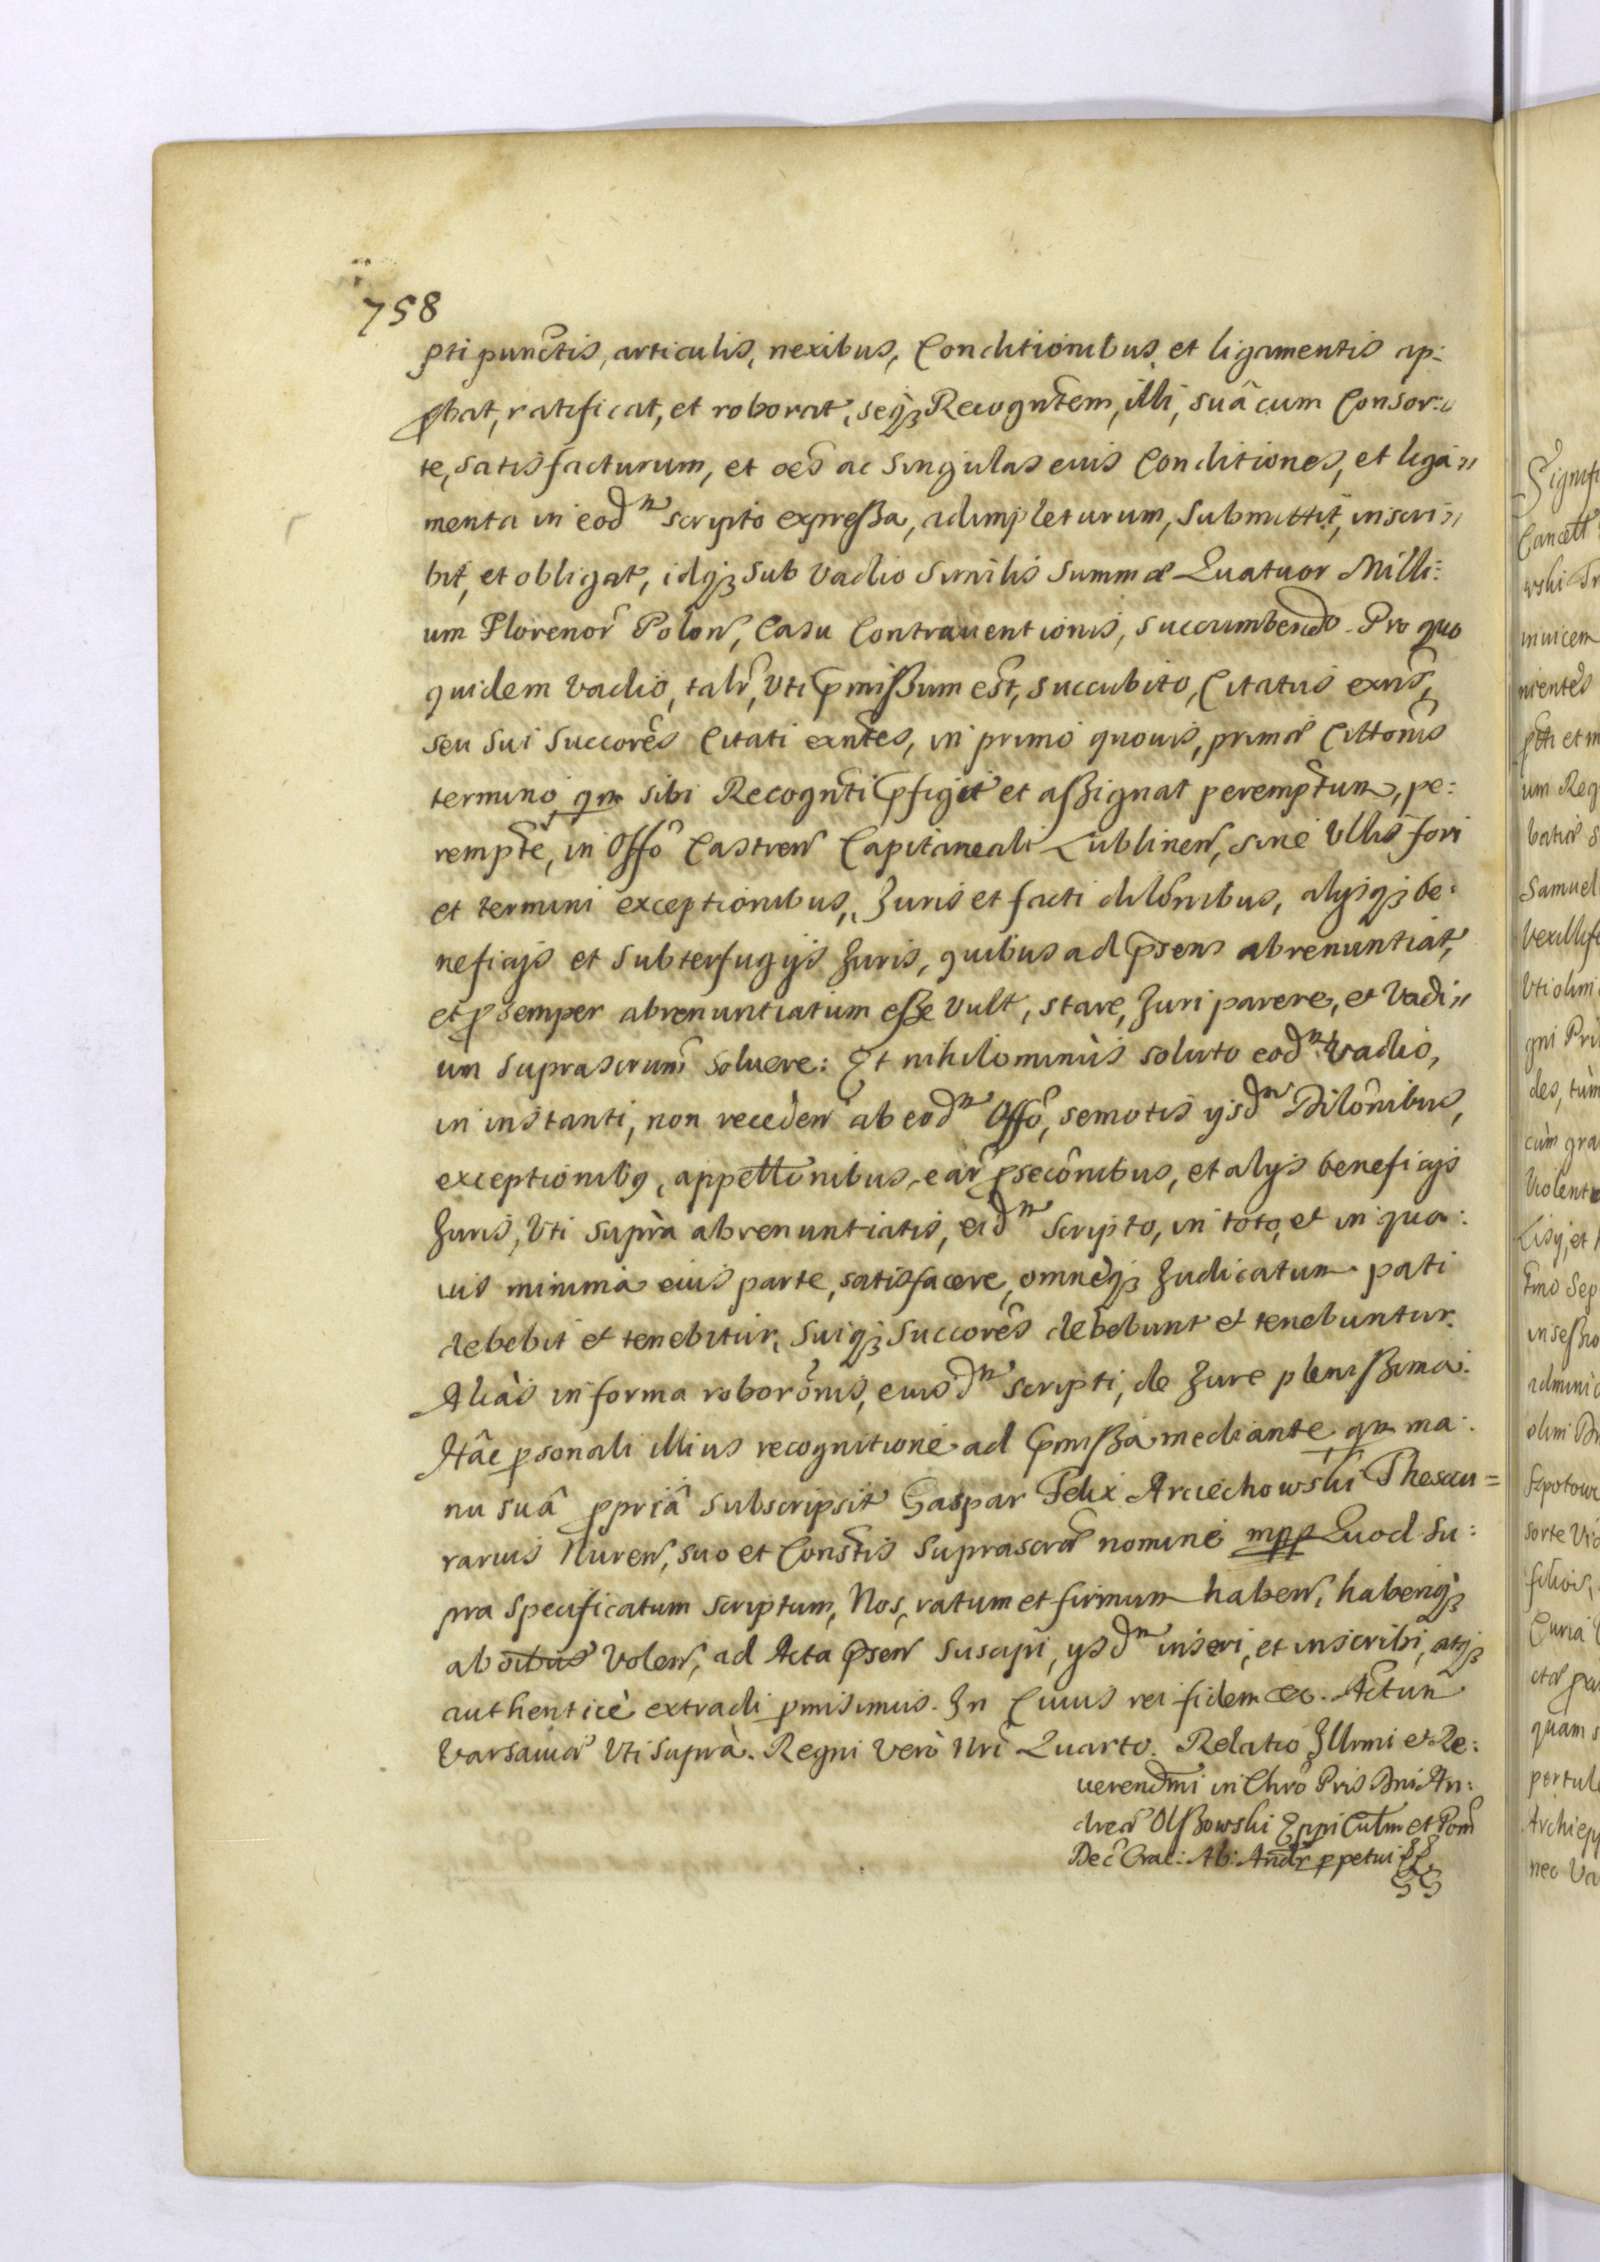 758
pti punctis, articulis, nexibus, Conditionibus et ligamentis ap:
pbat, ratificat, et roborat, seqз Recogntem, illi, suâ cum Consor:
te, satisfacturum, et oēs ac Singulas eius Conditiones, et liga"
menta in eodm scripto expreßa, adimpleturum, Submittit, inscri"
bit, et obligat, idqз sub Vadio Similis Summæ Quatuor Milli:
um Florenor Polon, Casu Contrauentionis, succumbendo. Pro quo
quidem Vadio, talr, Vti pmißum est, succubito, Citatus exns,
seu Sui Succores Citati exntes, in primo quouis, primæ Cittonis
termino, qm sibi Recognti pfigit et aßignat peremptum, pe:
rempte, in Offo Castren Capitaneali Lublinen, sine Vllis fori
et termini exceptionibus, Juris et facti dilonibus, alysqз be:
neficijs et Subterfugijs Juris, quibus ad psens abrenuntiat,
et p semper abrenuntiatum eße Vult, stare, Juri parere, et Vadi"
um suprascrum Soluere: Et nihilominùs soluto eodm Vadio,
in instanti, non receden ab eodm Offo, semotis ysdm Dilonibus,
exceptionibq, appellonibus, ear psecônibus, et alys beneficijs
Juris, Vti suprà abrenuntiatis, eidm scripto, in toto, et in qua:
uis minima eius parte, satisfacere, omneqз Judicatum pati
debebit et tenebitur, Suiqз Succores debebunt et tenebuntur.
Aliàs in forma roboronis, eiusdm scripti, de Jure plenißima.
Hâc psonali illius recognitione ad pmißa mediante, qm ma:
nu suâ ppriâ subscripsit Gaspar Felix Arciechowski Thesau=
rarius Nuren, suo et Constis Suprascræ nomine mpp Quod Su:
pra specificatum scriptum, Nos, ratum et firmum haben, haberiqз
ab oibus Volen, ad Acta psen suscipi, ysdm inseri, et inscribi, atqз
authenticè extradi pmisimus. In Cuius rei fidem &c. Actum
Varsauiæ Vti suprà. Regni Verò Nri Quarto. Relatio Illrmi et Re:
uerendmi in Chro Pris Dni An:
dreæ Olßowski Eppi Culm et Pom
Dec Crac: Ab: Andr ppetui